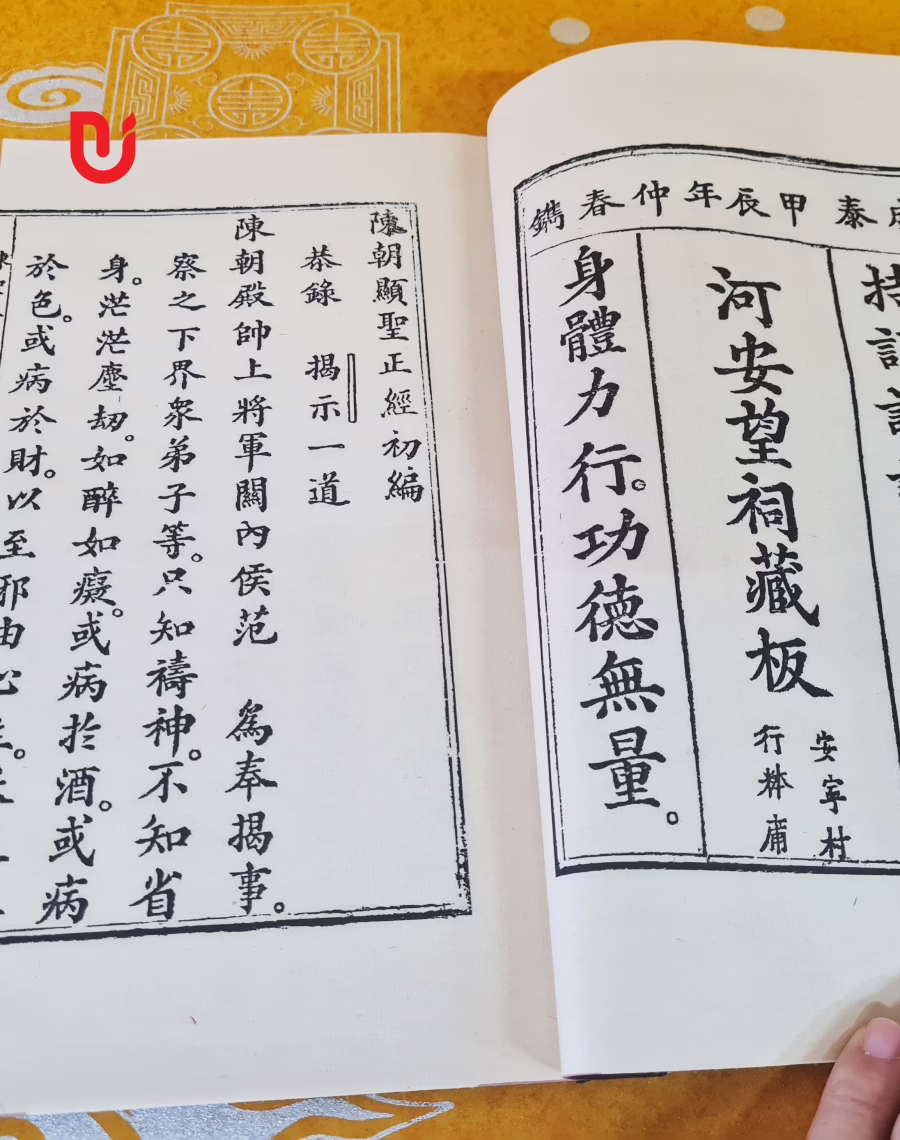 成泰甲辰年仲春鐫
持
河安望祠藏板
安寧村
行
身體力行。功德無量。
陳朝顯聖正經初編
恭錄 揭示一道
陳朝殿帥上將軍關內侯范 爲奉揭事。
察之下界衆弟子等。只知禱神。不知省
身。茫茫塵刼。如醉如癡。或病於酒。或病
於色。或病於財。以至邪由心